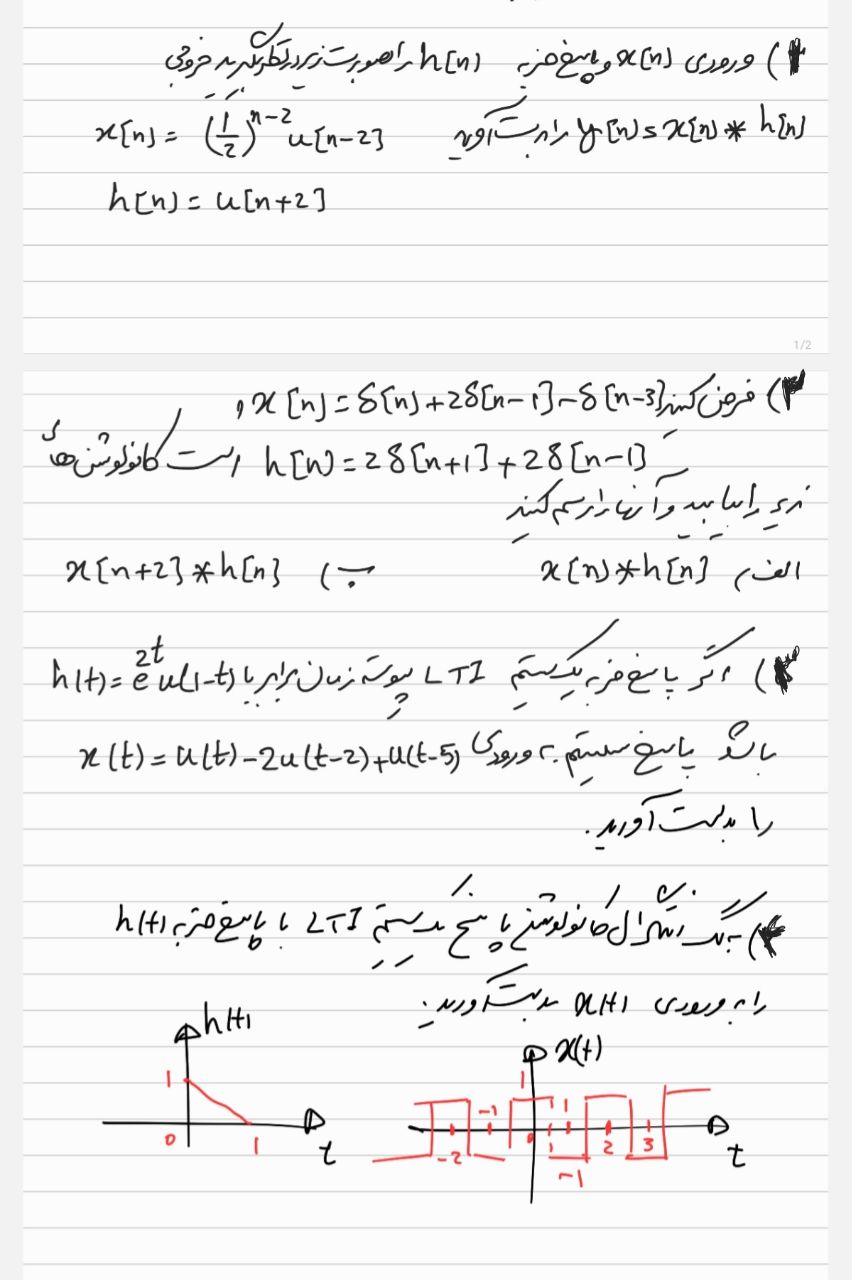 ۱) ورودی x[n] و پاسخ ضربه h[n] را بصورت زیر در نظر بگیرید خروجی
y[n] = x[n] * h[n] را بدست آورید x[n] = (1/2)^{n-2} u[n-2]
h[n] = u[n+2]
1/2
۲) فرض کنید x[n] = δ[n] + 2δ[n-1] - δ[n-3] و
h[n] = 2δ[n+1] + 2δ[n-1] است کانولوشن های
زیر را بیابید و آنها را رسم کنید
الف) x[n] * h[n] ب) x[n+2] * h[n]
۳) اگر پاسخ ضربه یک سیستم LTI پیوسته زمان برابر با h(t) = e^{2t} u(1-t)
باشد پاسخ سیستم به ورودی x(t) = u(t) - 2u(t-2) + u(t-5)
را بدست آورید.
۴) به کمک انتگرال کانولوشن پاسخ سیستم LTI با پاسخ ضربه h(t)
را به ورودی x(t) بدست آورید:
h(t)
1
0
1
t
x(t)
1
-2
-1
0
1
1
2
3
-1
t